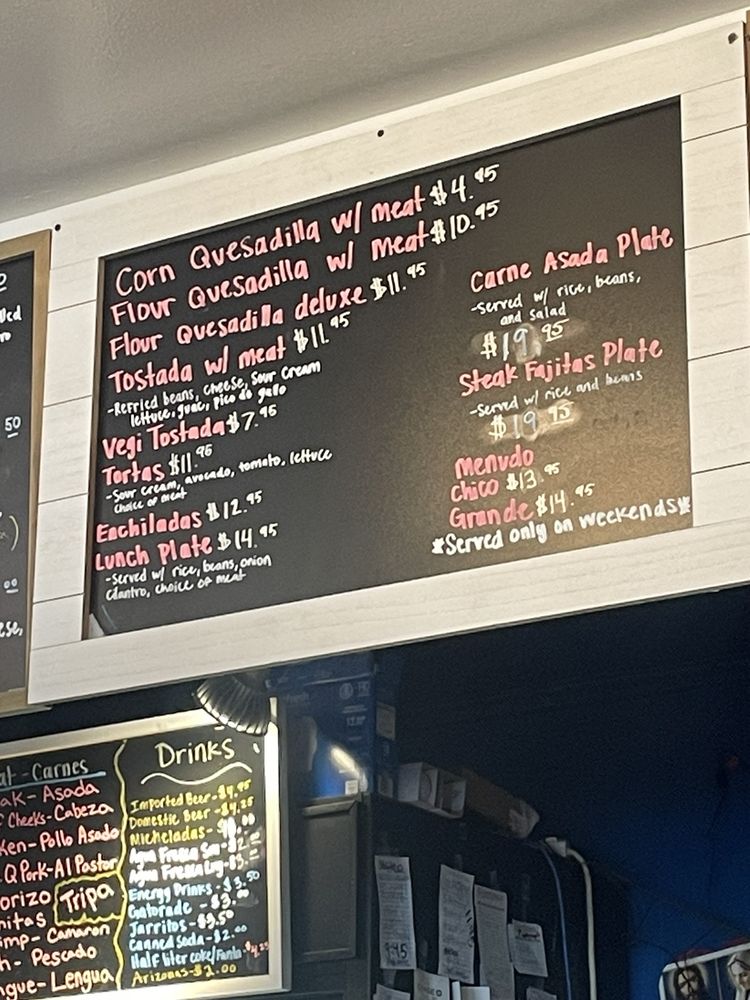 Corn Quesadilla w/ meat $4.95
Flour Quesadilla w/ meat $10.95
Flour Quesadilla deluxe $11.95
Tostada w/ meat $11.95
-Refried beans, cheese, sour cream
lettuce, guac, pico do gallo
Vegi Tostada $7.95
Tortas $11.95
-Sour cream, avocado, tomato, lettuce
choice of meat
Enchiladas $12.95
Lunch Plate $14.95
-Served w/ rice, beans, onion
cilantro, choice of meat
Carne Asada Plate
-Served w/ rice, beans,
and salad
$19.95
Steak Fajitas Plate
-Served w/ rice and beans
$19.95
Menudo
Chico $13.95
Grande $14.95
*Served only on weekends*
50
at-Carnes
ak-Asada
Cheeks-Cabeza
ken-Pollo Asado
Q Pork-Al Pastor
orizo Tripa
nitas
imp-Camaron
h-Pescado
ngue-Lengua
Drinks
Imported Beer-$4.95
Domestic Beer-$4.25
Micheladas-
Agua Fresca Sm-$2.
Agua Fresca Lrg-$3.
Energy Drinks-$3.50
Gatorade-$3.
Jarritos-$3.50
Canned Soda-$2.00
Half liter coke/Fanta-$4.25
Arizonas-$2.00